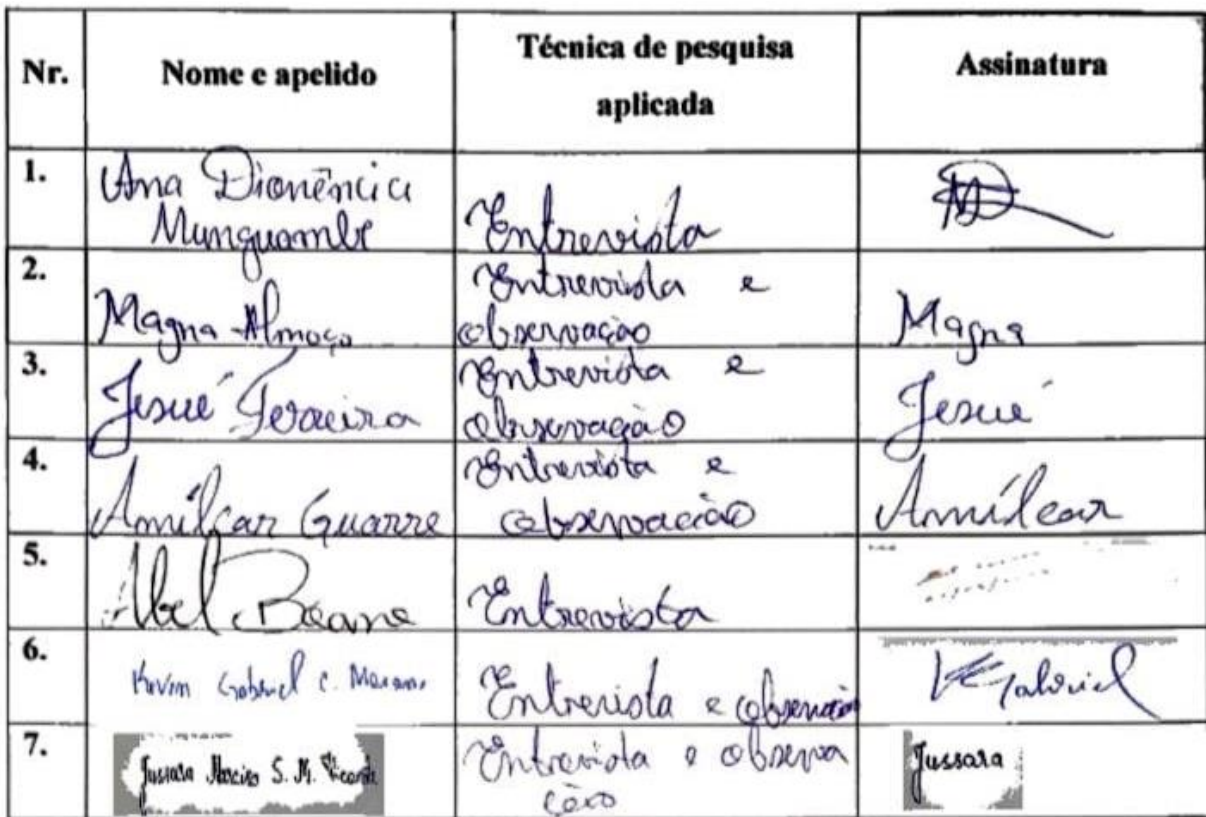 Nr. Nome e apelido Técnica de pesquisa aplicada Assinatura
1. Ana Dionência
Munguambe Entrevista
2. Magna Almoço Entrevista e
observação Magna
3. Jesué Ferreira Entrevista e
observação Jesué
4. Amílcar Guarre Entrevista e
observação Amílcar
5. Abel Boane Entrevista
6. Kevin Gabriel C. Entrevista e observação KGabriel
7. Jussara Narciso S. M. Vicente Entrevista e observa
ção Jussara